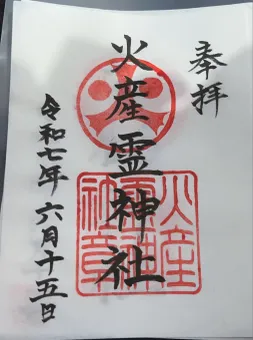 奉拝
火産霊神社
令和七年 六月十五日
火産
霊神
社章